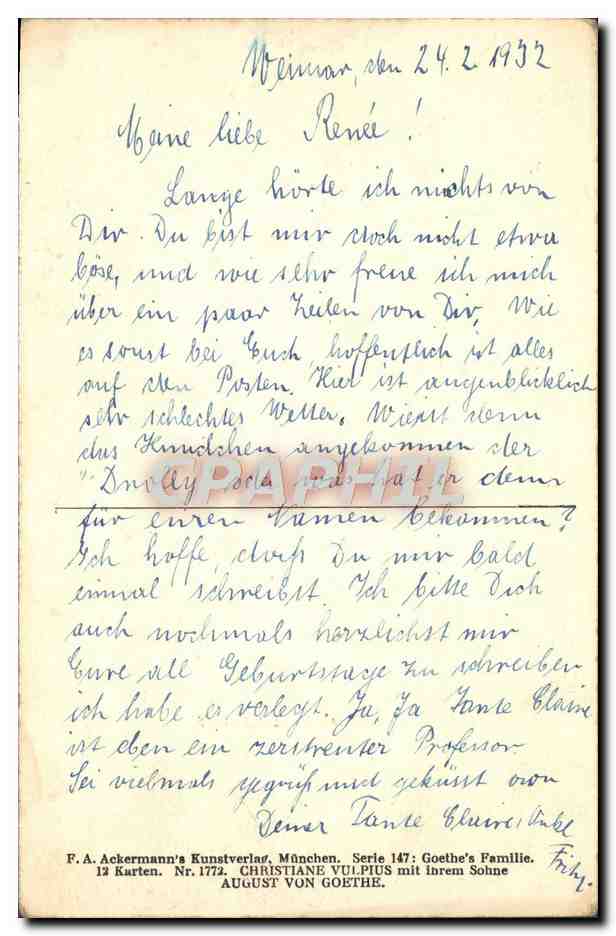 Weimar, den 24.2.1932
Meine liebe Renée!
Lange hörte ich nichts von
Dir. Du bist mir doch nicht etwa
böse, und wie sehr freue ich mich
über ein paar Zeilen von Dir. Wie
es sonst bei Euch, hoffentlich ist alles
auf den Posten. Hier ist augenblicklich
sehr schlechtes Wetter. Wie ist denn
das Hündchen angekommen der
"Drolly oder was hat er denn
für einen Namen bekommen?
Ich hoffe, daß Du mir bald
einmal schreibst. Ich bitte Dich
auch nochmals herzlichst mir
Eure all Geburtstage zu schreiben
ich habe es verlegt. Ja, Ja Tante Claire
ist eben ein zerstreuter Professor.
Sei vielmals gegrüßt und geküsst von
Deiner Tante Claire u. Onkel
Fritz.
CPARPHIL
F. A. Ackermann's Kunstverlag, München. Serie 147: Goethe's Familie.
12 Karten. Nr. 1772. CHRISTIANE VULPIUS mit ihrem Sohne
AUGUST VON GOETHE.